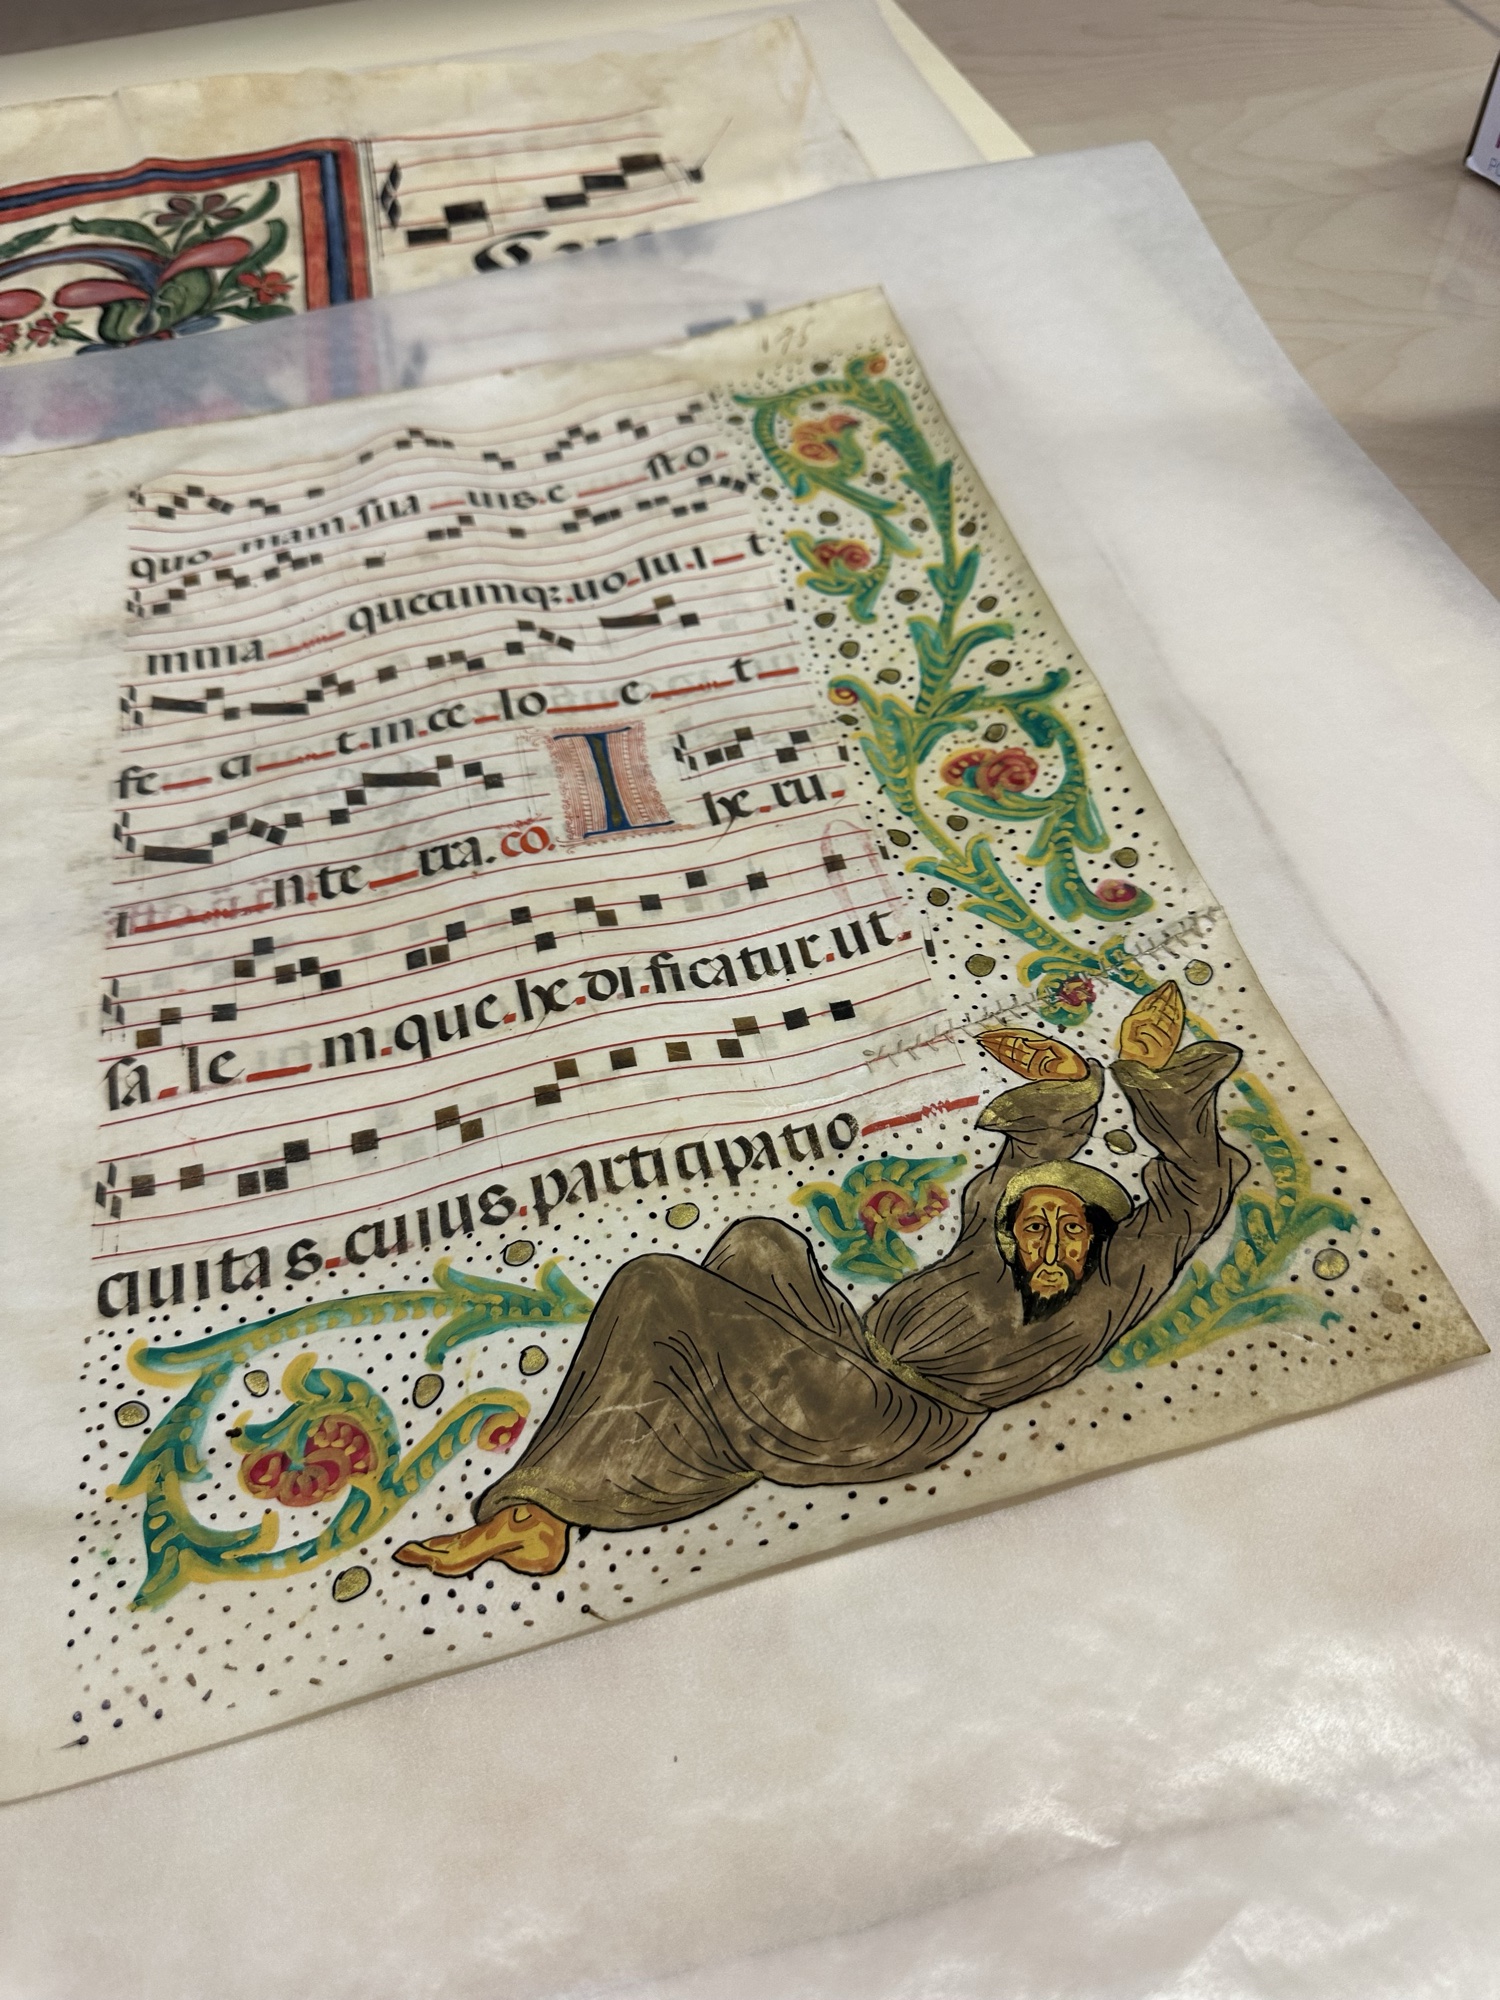 195
quo mam.sua uis.e sto
mnia quecumq:.uo.lu.i t
fe ci t.in.ce lo e t
i n.te rra. co. I he.ru.
sa.le m.que.he.di.ficatur.ut.
ciuita s.cuius.participatio